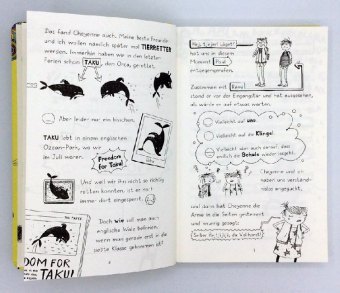 Das fand Cheyenne auch. Meine beste Freundin
und ich wollen nämlich später mal TIERRETTER
werden. Immerhin haben wir in den letzten
Ferien schon TAKU, den Orca, gerettet.
Aber leider nur ein bisschen.
TAKU lebt in einem englischen
Ozean-Park, wo wir
im Juli waren.
Freedom
for
Taku!
Und weil wir ihn nicht so richtig
retten konnten, ist er noch
immer dort eingesperrt.
Doch wie soll man auch
englische Wale befreien,
wenn man gerade erst in die
sechste Klasse gekommen ist?
DOM FOR
TAKU!
hat uns in dem
Moment Paul
entgegengerufen.
Zusammen mit
stand er vor der Eingangstür und hat ausgesehen,
als würde er auf etwas warten.
Vielleicht auf uns.
Vielleicht auf die Klingel.
Vielleicht aber auch darauf, dass
endlich die Schule wieder losgeht.
Cheyenne und er
haben uns verständnislos
angeguckt,
und dann hat Cheyenne die
Arme in die Seiten gestemmt
und wütend gesagt: